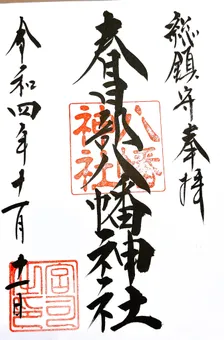 総鎮守奉拝
春日部八幡神社
八幡神社
令和四年十一月十一日